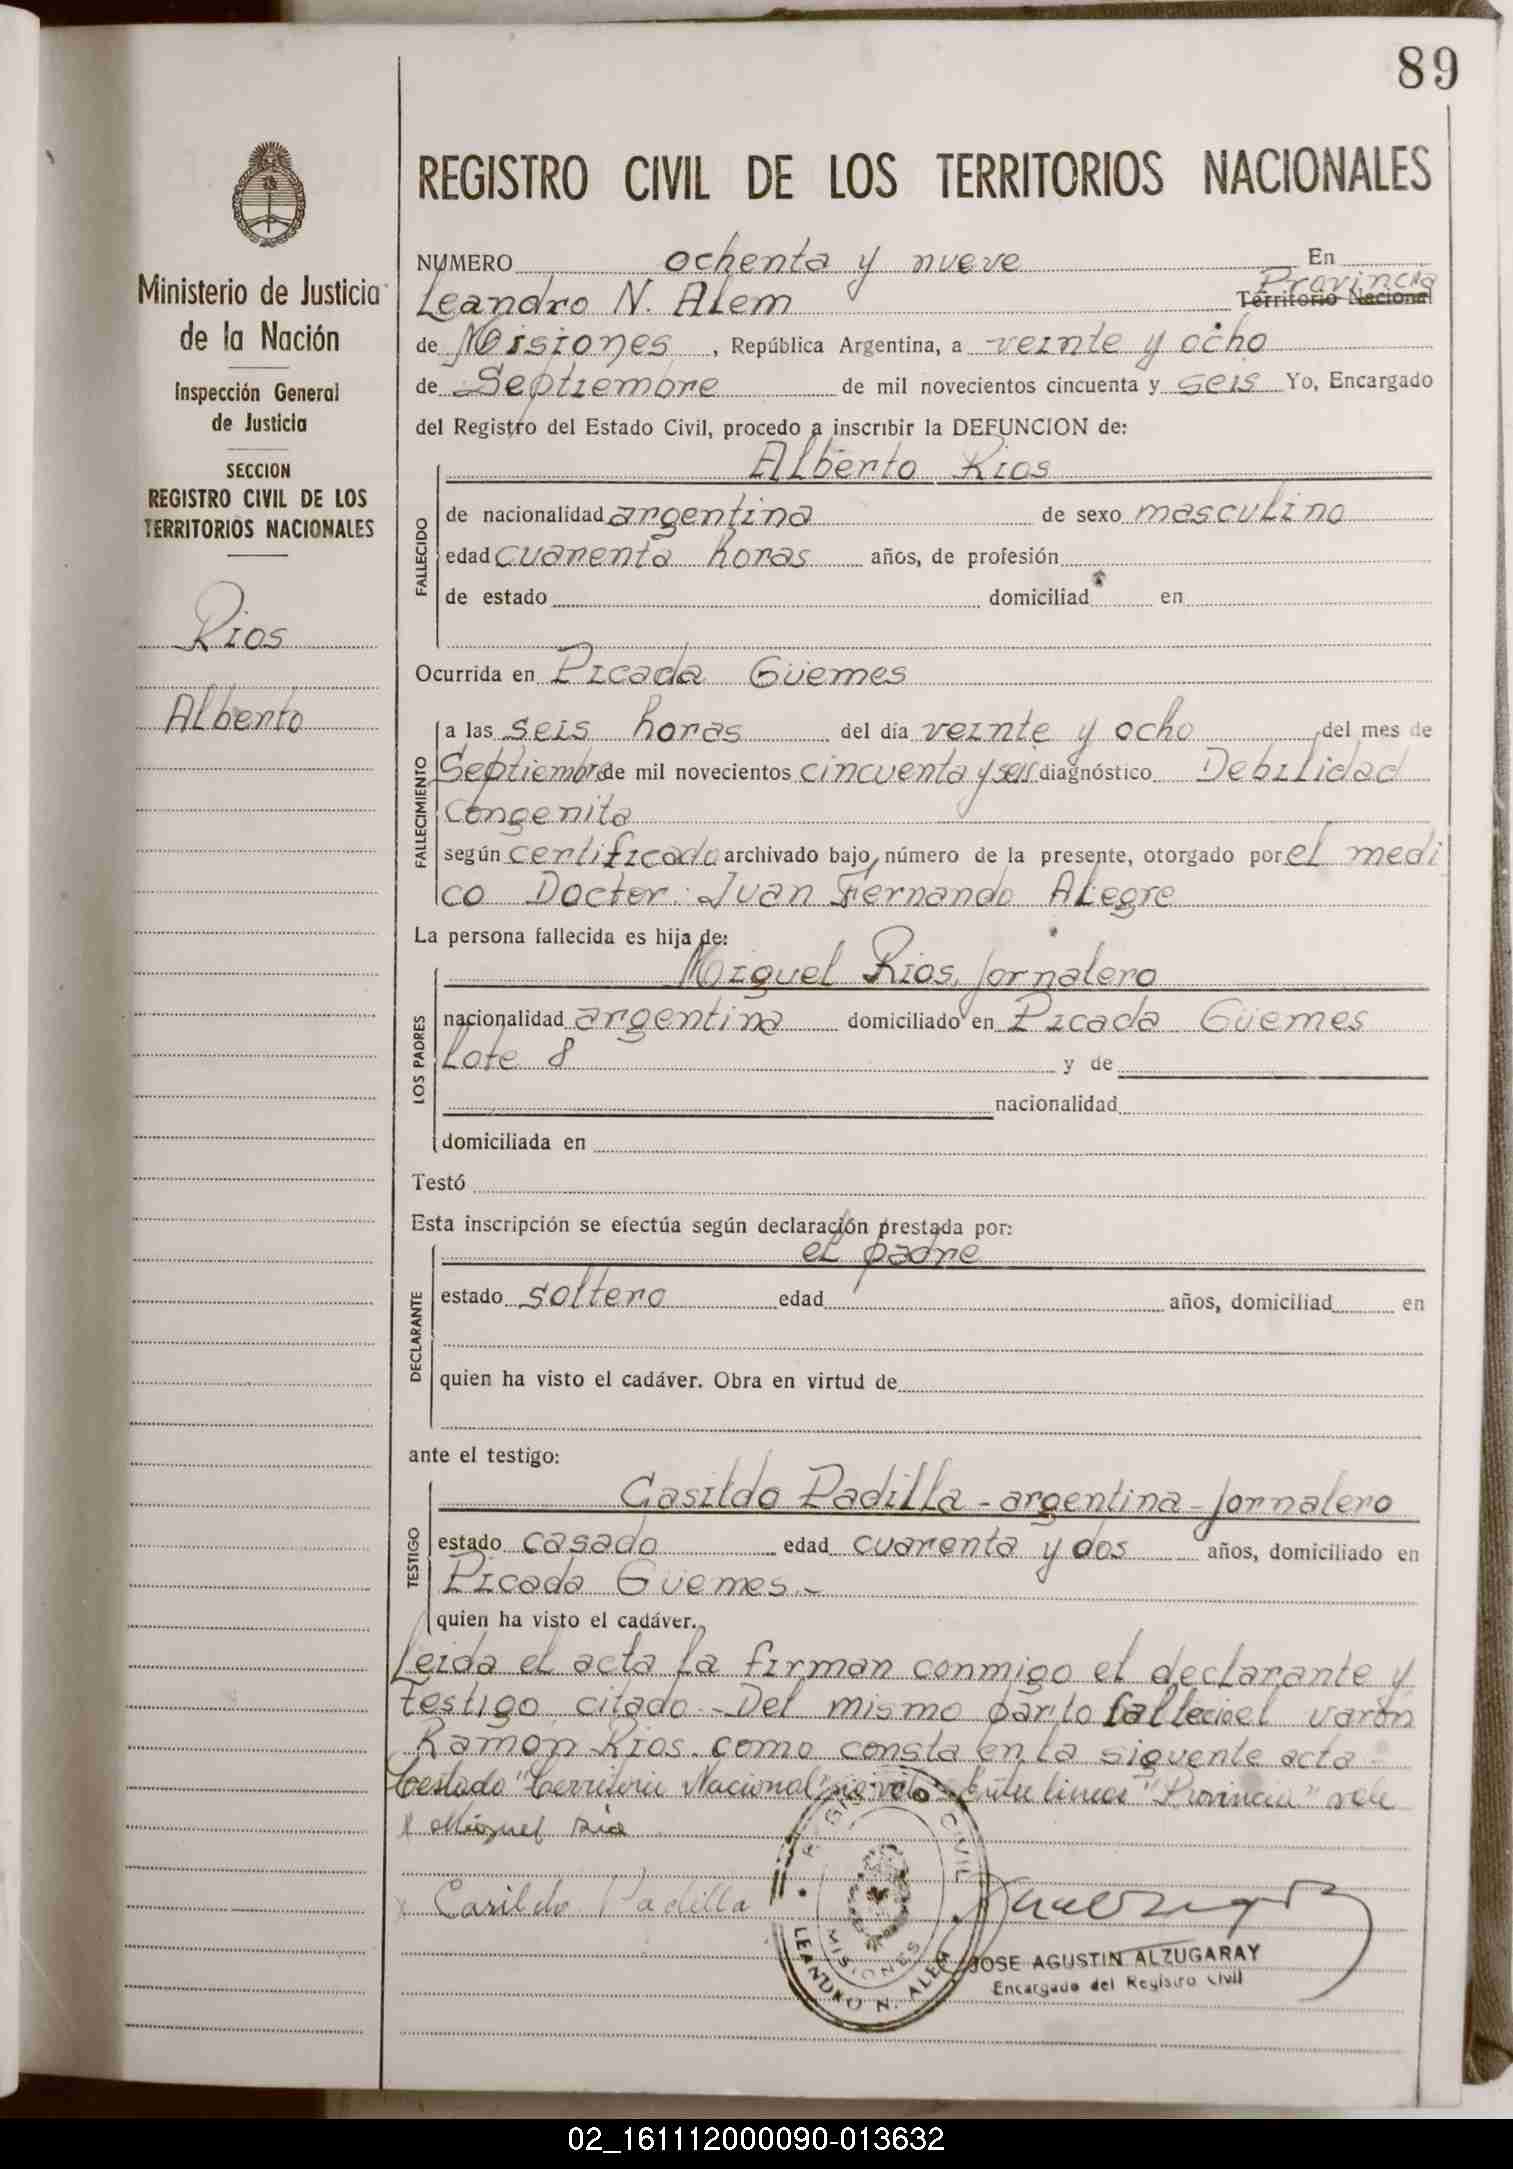 89
REGISTRO CIVIL DE LOS TERRITORIOS NACIONALES
Ministerio de Justicia
de la Nación
Inspección General
de Justicia
SECCION
REGISTRO CIVIL DE LOS
TERRITORIOS NACIONALES
Rios
Alberto
NUMERO ochenta y nueve En
Provincia
Leandro N. Alem Territorio Nacional
de Misiones, República Argentina, a veinte y ocho
de Septiembre de mil novecientos cincuenta y seis Yo, Encargado
del Registro del Estado Civil, procedo a inscribir la DEFUNCION de:
Alberto Rios
FALLECIDO
de nacionalidad argentina de sexo masculino
edad cuarenta horas años, de profesión
de estado domiciliad en
Ocurrida en Picada Güemes
FALLECIMIENTO
a las seis horas del día veinte y ocho del mes de
Septiembre de mil novecientos cincuenta y seis diagnóstico Debilidad
Congenita
según certificado archivado bajo número de la presente, otorgado por el medi
co Doctor: Juan Fernando Alegre
La persona fallecida es hija de:
LOS PADRES
Miguel Rios, jornalero
nacionalidad argentina domiciliado en Picada Güemes
Lote 8 y de
nacionalidad
domiciliada en
Testó
Esta inscripción se efectúa según declaración prestada por:
DECLARANTE
el padre
estado soltero edad años, domiciliad en
quien ha visto el cadáver. Obra en virtud de
ante el testigo:
TESTIGO
Casildo Padilla - argentina - jornalero
estado casado edad cuarenta y dos años, domiciliado en
Picada Güemes.-
quien ha visto el cadáver.
Leida el acta la firman conmigo el declarante y
testigo citado.- Del mismo parto fallecio el varon
Ramon Rios como consta en la siguente acta
Testado "Territorio Nacional" no vale - Entre lineas "Provincia" vale
x Miguel Rio
x Casildo Padilla
REGISTRO CIVIL
MISIONES
LEANDRO N. ALEM
JOSE AGUSTIN ALZUGARAY
Encargado del Registro Civil
02_161112000090-013632